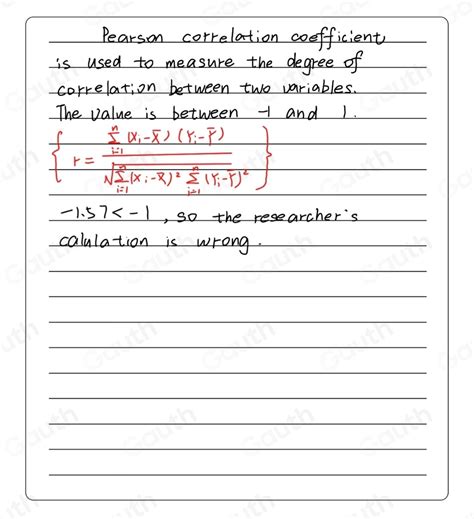 Pearson correlation coefficient
is used to measure the degree of
correlation between two variables.
The value is between -1 and 1.
{ r = \frac{\sum_{i=1}^{n} (x_i - \bar{x}) (Y_i - \bar{Y})}{\sqrt{\sum_{i=1}^{n} (x_i - \bar{x})^2 \sum_{i=1}^{n} (Y_i - \bar{Y})^2}} }
-1.57 < -1, so the researcher's
calulation is wrong.
Gauth